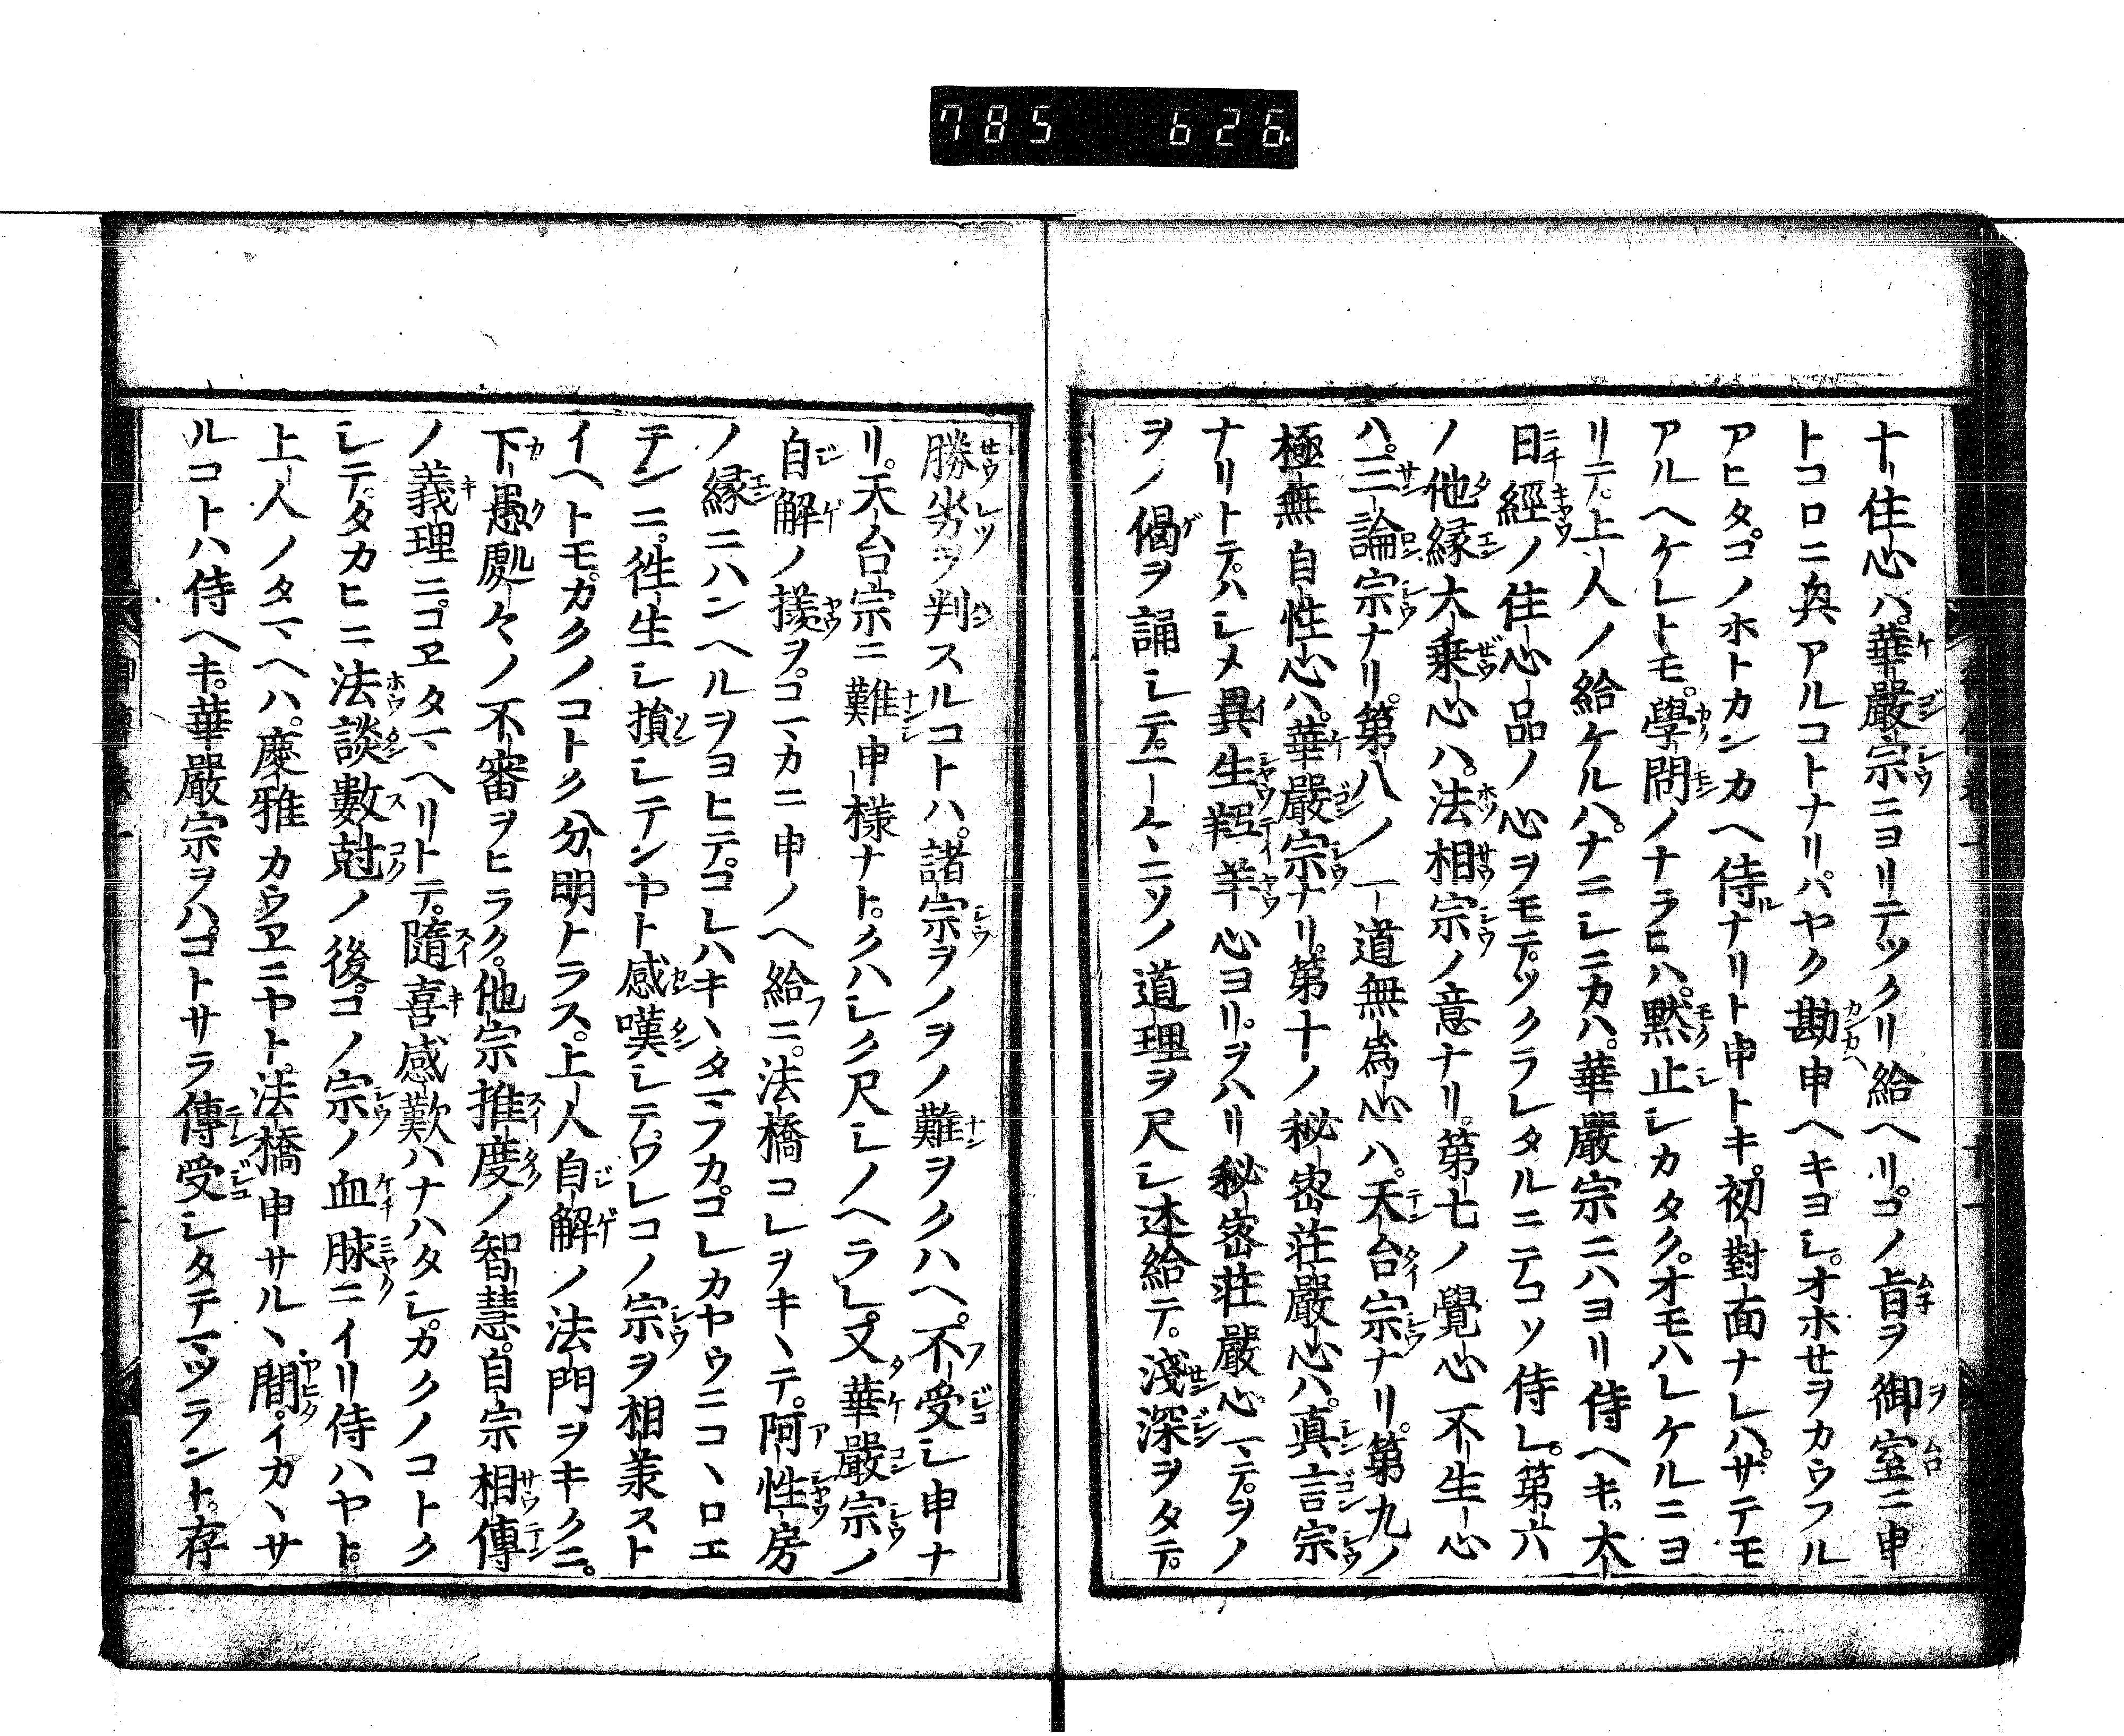 785 626
十住心ハ。華嚴宗ニヨリテツクリ給ヘリ。コノ旨ヲ御室ニ申
トコロニ與アルコトナリハヤク勘申ヘキヨシ。オホセヲカウフル
アヒタ。コノホトカンカヘ侍ナリト申トキ。初對面ナレハ。サテモ
アルヘケレトモ。學問ノナラヒハ。黙止シカタク。オモハレケルニヨ
リテ。上人ノ給ケルハ。ナニシニカハ。華嚴宗ニハヨリ侍ヘキ。大
日經ノ住心品ノ心ヲモテ。ツクラレタルニテコソ侍レ。第六
ノ他縁大乗心ハ。法相宗ノ意ナリ。第七ノ覺心不生心
ハ。三論宗ナリ。第八ノ一道無爲心ハ。天台宗ナリ。第九ノ
極無自性心ハ。華嚴宗ナリ。第十ノ秘密荘嚴心ハ。真言宗
ナリトテ。ハシメ異生羝羊心ヨリ。ヲハリ秘密荘嚴心マテ。ヲノ
ヲノ偈ヲ誦シテ。一々ニソノ道理ヲ尺シ述給テ。淺深ヲタテ。
勝劣ヲ判スルコトハ。諸宗ヲノヲノ難ヲクハヘ。不受シ申ナ
リ。天台宗ニ難申様ナト。クハシク尺シノヘラレ。又華嚴宗ノ
自解ノ様ヲ。コマカニ申ノヘ給フニ。法橋コレヲキヽテ。阿性房
ノ縁ニハンヘルヲヨヒテ。コレハキヽタマフカ。コレカヤウニコヽロエ
テンニ。徃生シ損シテンヤト感嘆シテ。ワレコノ宗ヲ相羕スト
イヘトモ。カクノコトク分明ナラス。上人自解ノ法門ヲキクニ。
下愚處々ノ不審ヲヒラク。他宗推度ノ智慧。自宗相傳
ノ義理ニ。コエタマヘリトテ。隨喜感歎ハナハタシ。カクノコトク
シテ。タカヒニ法談數尅ノ後。コノ宗ノ血脉ニイリ侍ハヤト。
上人ノタマヘハ。慶雅カウエニヤト。法橋申サルヽ間。イカヽサ
ルコトハ侍ヘキ。華嚴宗ヲハ。コトサラ傳受シタテマツラント。存